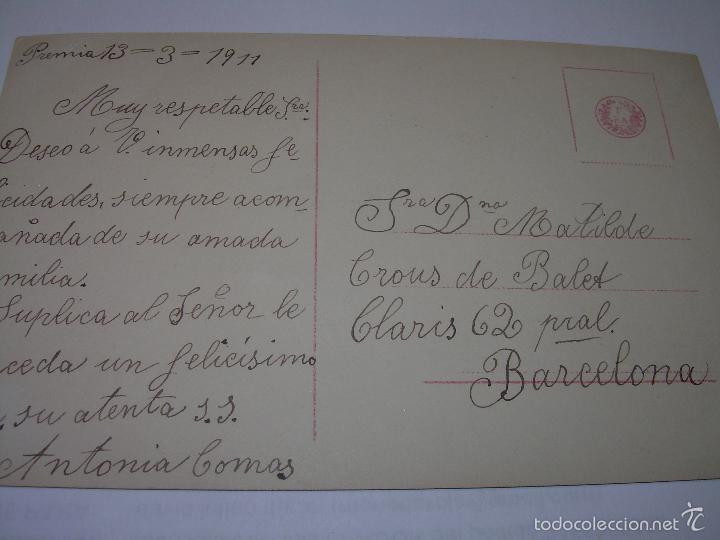 Premia 13-3-1911
Muy respetable Sra.
Deseo á V. inmensas fe-
cidades, siempre acom-
añada de su amada
milia.
Suplica al Señor le
ceda un felicísimo
su atenta s.s.
Antonia Comas
Sra Dna Matilde
Crous de Balet
Claris 62 pral.
Barcelona
todocoleccion.net